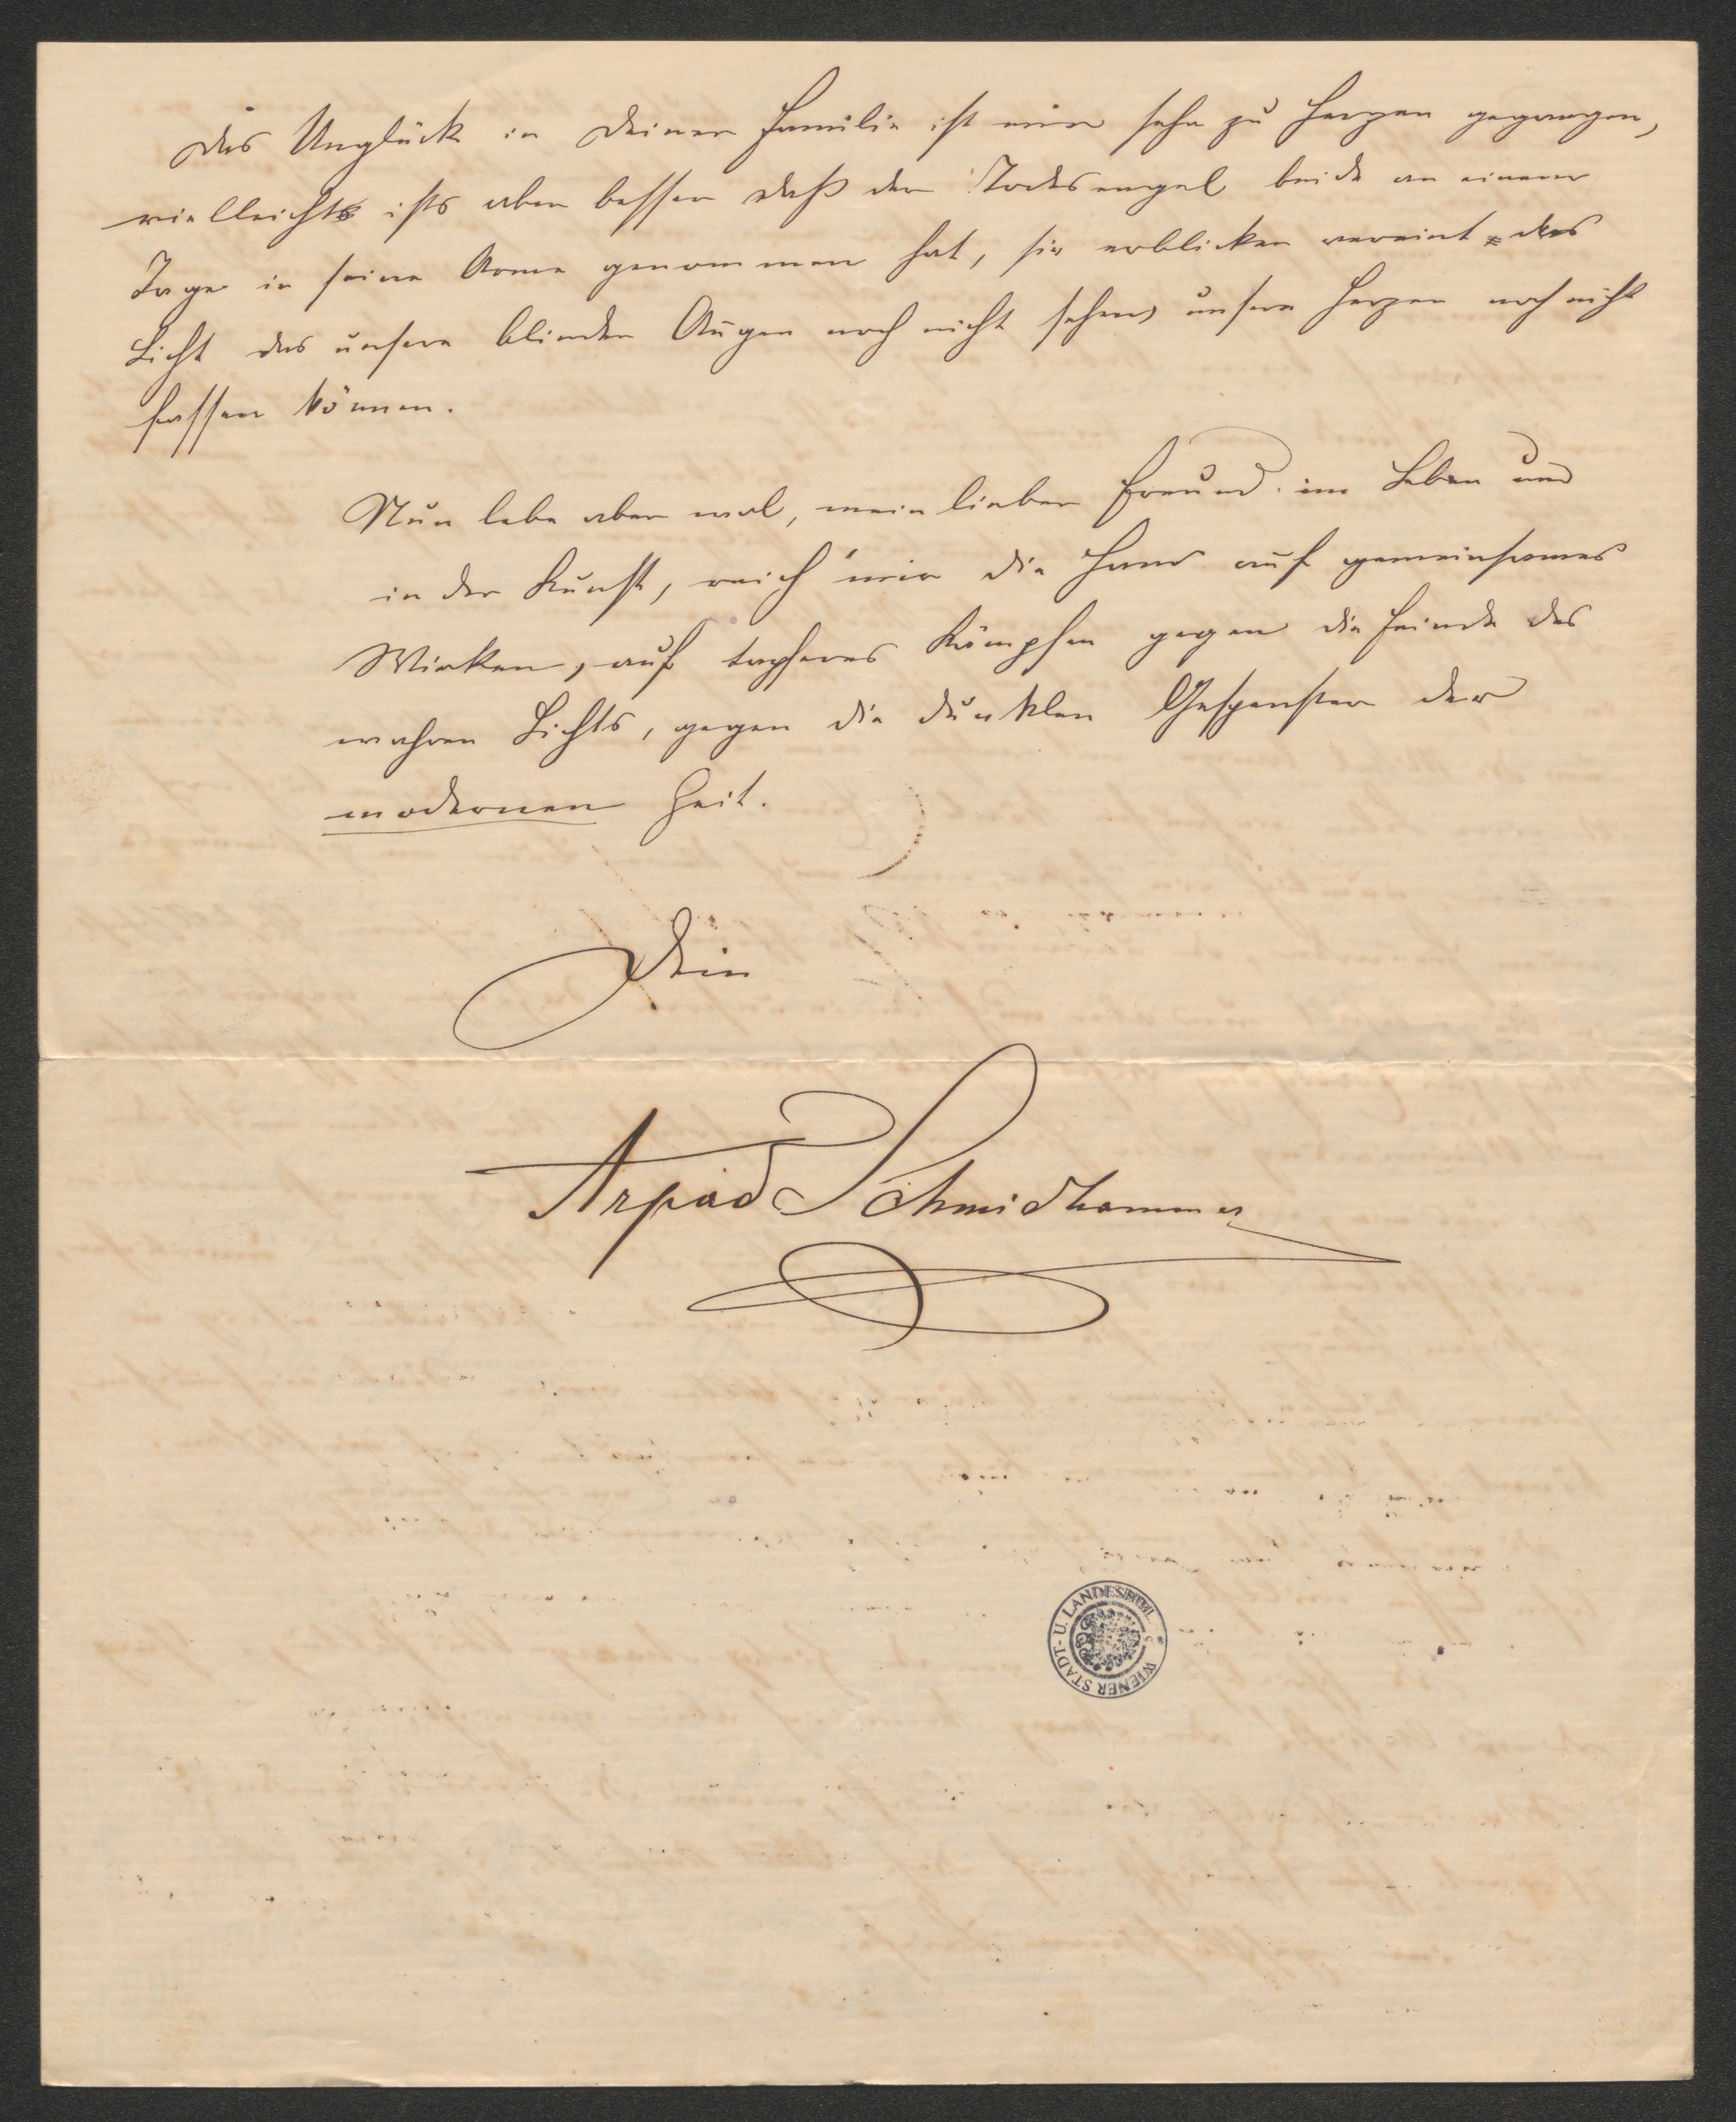 Das Unglück in Deiner Familie ist mir sehr zu Herzen gegangen,
vielleicht ists aber besser daß der Todesengel beide an einem
Tage in seine Arme genommen hat, sie erblicken vereint das
Licht das unsere blinden Augen noch nicht sehen, unsere Herzen noch nicht
fassen können.
Nun lebe aber wol, mein lieber Freund im Leben und
in der Kunst, reich mir die Hand auf gemeinsames
Wirken, auf tapferes Kämpfen gegen die Feinde des
wahren Lichts, gegen die dunklen Gespenster der
modernen Zeit.
Dein
Arpad Schmidhammer
WIENER STADT- U. LANDESBIBL.